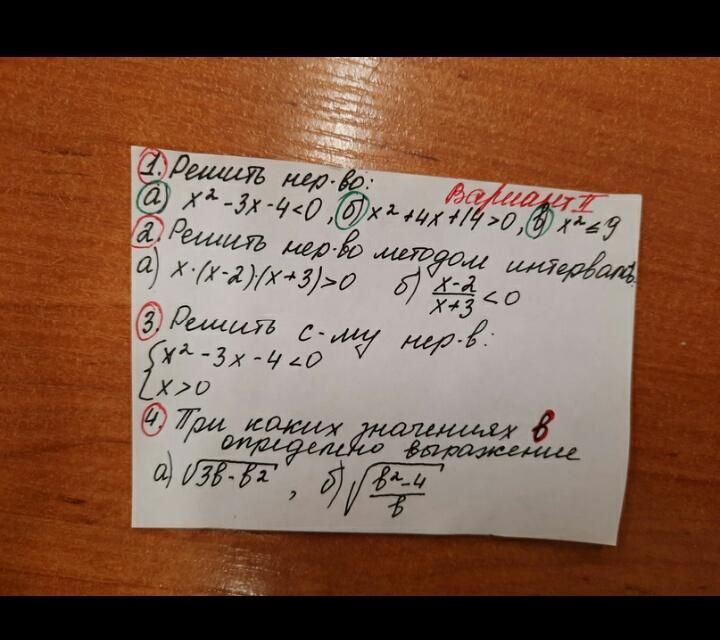 1. Решить нер-во:
Вариант II
а) x² - 3x - 4 < 0, б) x² + 4x + 14 > 0, в) x² ≤ 9
2. Решить нер-во методом интервалов.
а) x·(x-2)·(x+3) > 0 б) (x-2)/(x+3) < 0
3. Решить с-му нер-в:
{ x² - 3x - 4 < 0
{ x > 0
4. При каких значениях в
определено выражение
а) √(3в - в²), б) √((в² - 4)/в)